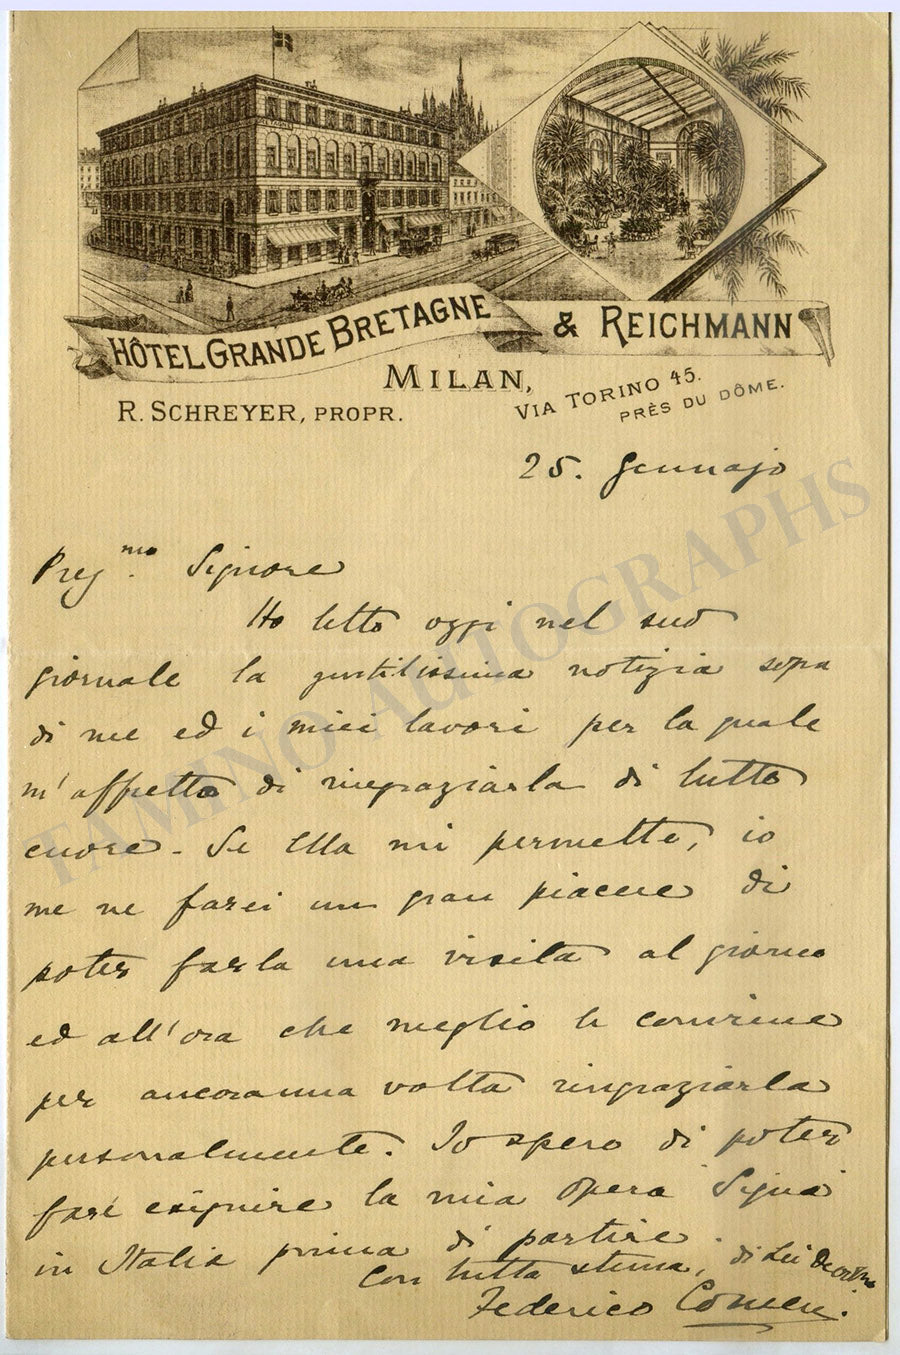 HÔTEL GRANDE BRETAGNE & REICHMANN
MILAN,
R. SCHREYER, PROPR.
VIA TORINO 45.
PRÈS DU DÔME.
25. Gennajo
Preg.mo Signore
Ho letto oggi nel suo
giornale la gentilissima notizia sopra
di me ed i miei lavori per la quale
m'affretto di ringraziarla di tutto
cuore. Se Ella mi permette, io
me ne farei un gran piacere di
poter farla una visita al giorno
ed all'ora che meglio le conviene
per ancora una volta ringraziarla
personalmente. Io spero di poter
fare eseguire la mia opera
in Italia prima di partire.
Con tutta stima, di Lei
Federico
TAMINO AUTOGRAPHS